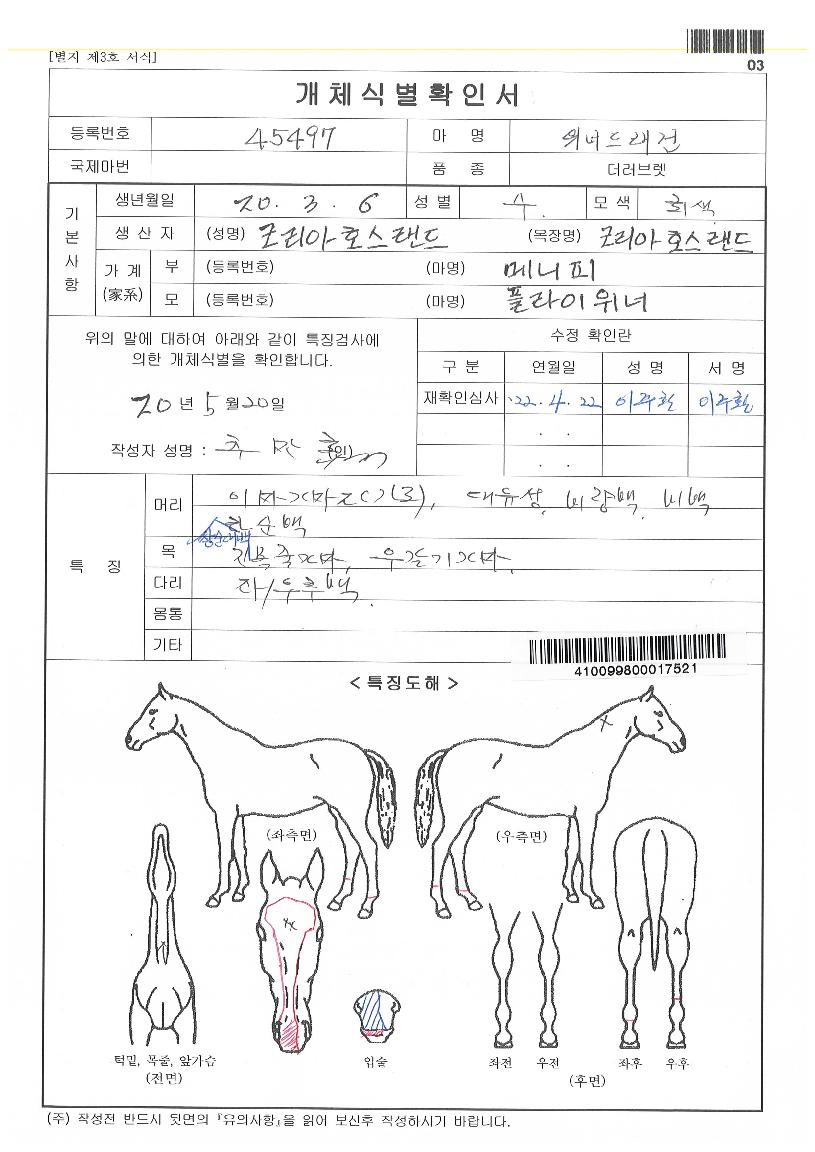 [별지 제3호 서식]
03
개체식별확인서
등록번호 45497 마 명 위너드래건
국제마번 품 종 더러브렛
기본사항
생년월일 20. 3. 6 성 별 수. 모 색 회색
생 산 자 (성명) 코리아호스랜드 (목장명) 코리아호스랜드
가 계 (家系)
부 (등록번호) (마명) 메니피
모 (등록번호) (마명) 플라이위너
위의 말에 대하여 아래와 같이 특징검사에
의한 개체식별을 확인합니다.
20 년 5 월 20 일
작성자 성명 : 추 만 (인)
수정 확인란
구 분 연월일 성 명 서 명
재확인심사 '22. 4. 22
. .
. .
특 징
머리 대유성, 비량백, 비백
순백
목
다리 좌/우후백
몸통
기타
410099800017521
< 특징도해 >
(좌측면) (우측면)
턱밑, 목줄, 앞가슴
(전면)
입술
좌전 우전 좌후 우후
(후면)
(주) 작성전 반드시 뒷면의 『유의사항』을 읽어 보신후 작성하시기 바랍니다.